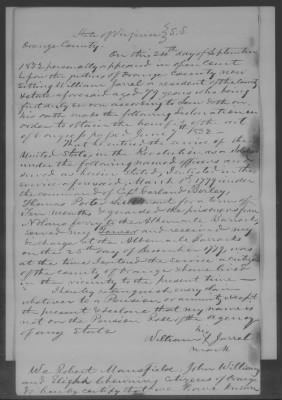 State of Virginia } S.S.
Orange County.
On this 24th day of September
1832 personally appeared in open Court
before the justices of Orange County now
sitting William Jarrel a resident of the County
& State aforesaid aged 77 years who being
first duly sworn according to law doth on
his oath make the following declaration in
order to obtain the benefit of the act
of Congress passed June 7th 1832 —
That he entered the service of the
United States in the Revolution as a
under the following named officers and
served as herein stated, Enlisted in the
service aforesaid March 1st 1779 under
the command of Capt Garland Burley,
Thomas Porter Lieutenant for a term of
Ten months & guarded the prisoners from
at the Albemarle Barracks,
served my and received my
discharge at the Albemarle Barracks
on the 25th day of December 1779, was
at the time I entered the service a citizen
of the county of Orange above listed
in the vicinity to the present time —
I hereby relinquish every claim
whatever to a Pension or annuity except
the present & declare that my name is
not on the Pension Roll of the Agency
of any State
his
William X Jarrel
mark
We Robert Mansfield, John William
and Elijah Chewning citizens of Orange
do hereby certify that we have known